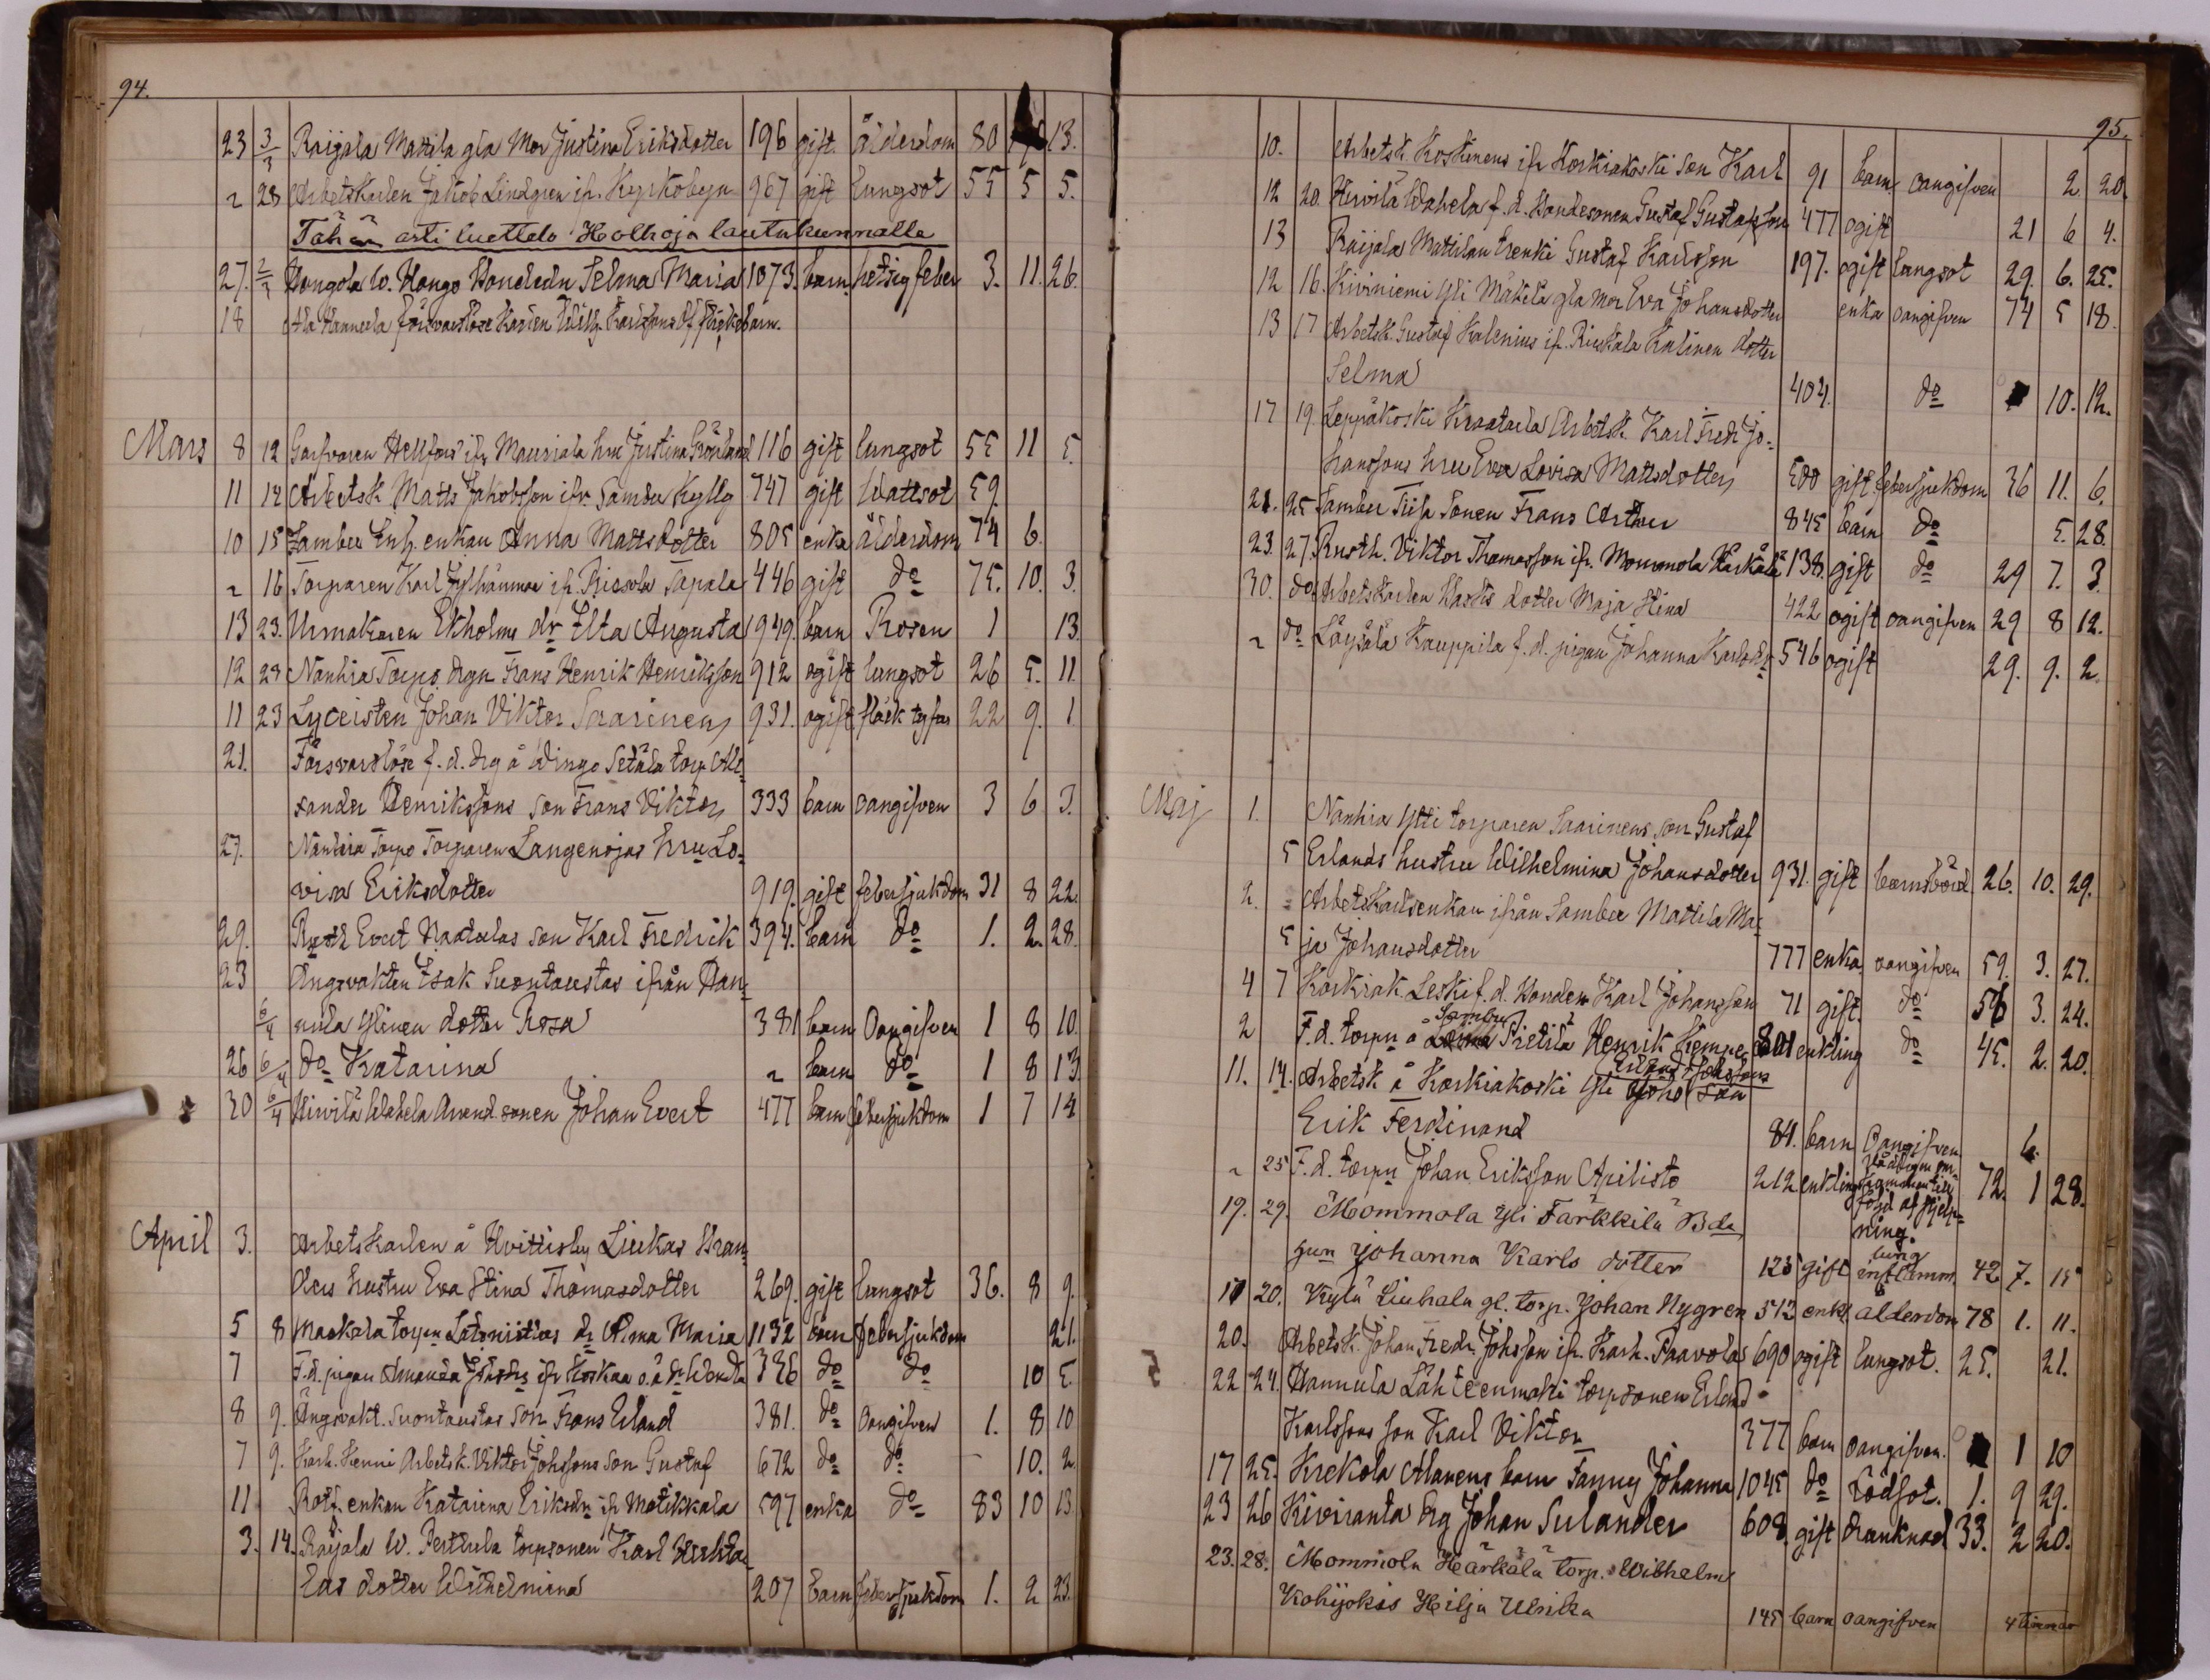 94.
23 3/3 Raijala Mattila gla Mor Justina Eriksdotter 196 gift ålderdom 80 13.
28 Arbetskarlen Jakob Lindgren ifr. Kyrkobyn 967 gift lungsot 55 5 5.
Tähän asti luettelo Holhoja lautakunnalle
27. Hongola W. Hongo Hondedn Selma Maria 1073. barn hetsig feber 3. 11. 26.
18 försvarslöse Karlen Wilh. Karlssons barn.
Mars 8 12 Garfvaren Hellfors ifr Mauriala hru Justina Grönlund 116 gift lungsot 55 11 5.
11 12 Arbetsk. Matts Jakobsson ifr. Sambu Kyllg 747 gift Wattsot 59.
10 15 Sambu Inh. enkan Anna Mattsdotter 805 enka ålderdom 74 6.
16 Torparen Karl ifr. Riesola Tapala 446 gift do 75. 10. 3.
13 23. Urmakaren Ekholms dr Ilta Augusta 949. barn Rosen 1 13.
12 23 Nanhia Torpo drgn Frans Henrik Henriksson 912 ogift lungsot 26 5. 11.
11 23 Lyceisten Johan Viktor Saarinen 931. ogift fläck tyfus 22 9. 1.
21. Försvarslöse f. d. drg å Wingo Setälä torp Alek-
sander Henrikssons son Frans Viktor 333 barn oangifven 3 6 3.
27. Nanhia Torpo Torparen Langenojas hru Lo-
visa Eriksdotter 919. gift febersjukdom 31 8 22.
29. Rusth Evert Naatulas son Karl Fredrick 394. barn do 1. 2. 28.
23 Ängsvakten Isak Suontaustas ifrån Han-
6/4 nula Ylinen dotter Rosa 381 barn Oangifven 1 8 10.
26 6/4 do Katarina barn do 1 8 13.
30 6/4 Hirvilä Wahela Arrend. sonen Johan Evert 477 barn febersjukdom 1 7 14
April 3. Arbetskarlen å Hvittisby Liukas Gran-
ders hustru Eva Stina Thomasdotter 269. gift lungsot 36. 8 9.
5 8 Maskala torpn Latoniittus dr Alma Maria 1132 barn febersjukdom 21.
7 F. d. pigan Amanda ifr Koskua o. ä dr Wenda 336 do do 10 5.
8 9. Ängsvakt. Suontaustas son Frans Erland 381. do oangifven 1. 8 10
7 9. Karh. Kenni Arbetsk. Viktor Johssons son Gustaf 672 do do - 10. 2.
11 Rotf. enkan Katarina Eriksdr ifr Motikkala 597 enka do 83 10 13
3. 14. Raijala W. Perttula torpsonen Karl
las dotter Wilhelmina 207 barn febersjukdom 1. 2 23.
95.
10. Arbetsk. Koskinens ifr Korkiakoski son Karl 91 barn oangifven 2. 20.
12 20. Hirvilä Wahela f. d. Hondesonen Gustaf Gustafsson 477 ogift 21 6 4.
13 Raijala Mattilan trenki Gustaf Karlsson 197. ogift lungsot 29. 6. 25.
12 16. Kiviniemi Yli Mäkelä gla mor Eva Johansdotter enka oangifven 74 5 18.
13 17 Arbetsk. Gustaf Kalenius ifr. Riuskala Kalinen dotter
Selma 404. do 10. 12.
17 19. Leppäkoski Knaatila Arbetsk. Karl Fredr. Jo-
hanssons hru Eva Lovisa Mattsdotter 500 gift febersjukdom 36 11. 6.
21. 25 Sambu Tiifr Sonen Frans Arthur 845 barn do 5. 28.
23. 27. Rusth. Viktor Thomasson ifr. Mommola Härkälä 138. gift do 29 7. 3.
30. do Arbetskarlen Hasts dotter Maja Stina 422 ogift oangifven 29 8 12.
do Löysälä Kauppila f. d. pigan Johanna Karlsdr 546 ogift 29. 9. 2.
Maj 1. Nanhia Ytti torparen Saarinens son Gustaf
5 Erlands hustru Wilhelmina Johansdotter 931. gift barnsbörd 26. 10. 29.
2. Arbetskarlsenkan ifrån Sambu Mattila Ma-
5 ja Johansdotter 777 enka oangifven 59. 3. 27.
4 7 Korkiak. Leski f. d. Honden Karl Johansson 71 gift. do 56 3. 24.
2 F. d. torpn å Sambu Pietilä Henrik Kempe 801 enkling do 45. 2. 20.
11. 14. Arbetsk å Korkiakoski Yli Erland Johssons son
Erik Ferdinand 84. barn Oangifven 6.
25 F. d. torpn Johan Eriksson Apilisto 212 enkling framkommen till följd af 72. 1 28.
19. 29. Mommola Yli Tarkkila Bda
gun Johanna Karls dotter 125 gift lung inflamm. 42 7. 15
17 20. Kylä Liuhala gl. torp. Johan Nygren 512 enkl ålderdom 78 1. 11.
20. Arbetsk. Johan Fredr. Johsson ifr. Karh. Paavolas 690 ogift lungsot. 25. 21.
22 24. Hannula Lähteenmäki torpsonen Erland
Karlssons son Karl Viktor 377 barn oangifven. 1 10
17 25. Krekola Alanens barn Fanny Johanna 1045 do Rödsot. 1. 9 29.
23 26 Kiviranta drg Johan Sulander 608. gift drunknad 33. 2 20.
23. 28. Mommola Härkälä torp. Wilhelms
Kohijokis Hilja Ulrika 145 barn oangifven 4 timmar